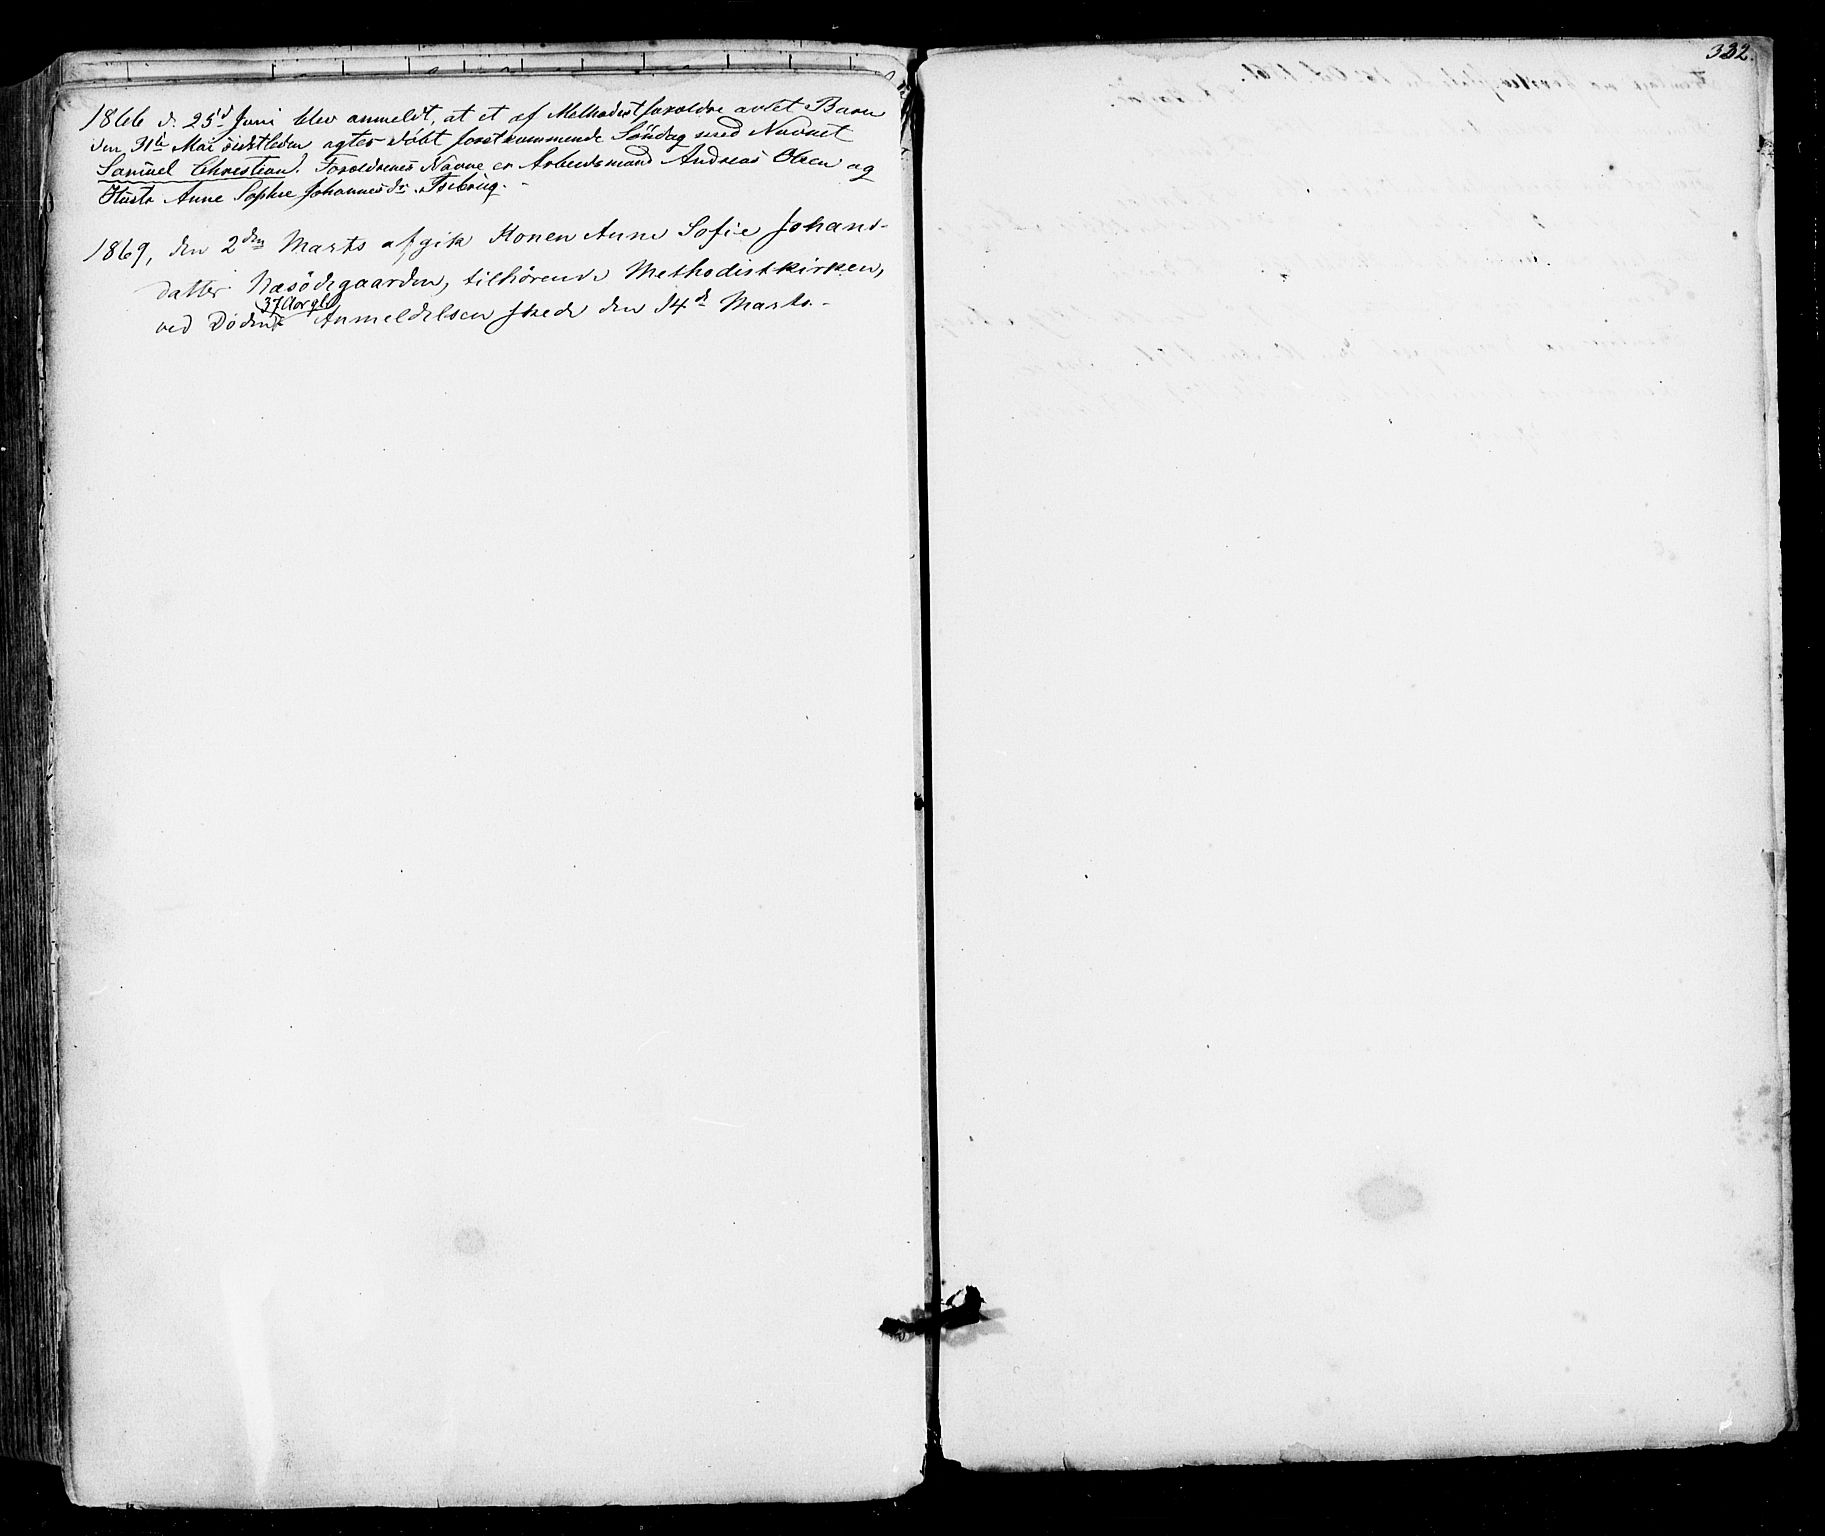 332.
1866 d. 25d Juni blev anmeldt, at et af Methodistforældre avlet Barn
den 31te Mai sidstleden agtes døbt førstkommende Søndag med Navnet
Samuel Christian. Forældrenes Navne er Arbeidsmand Andreas Olsen og
Hustr Anne Sophie Johannesdr.
1869, den 2den Marts afgik Konen Anne Sofie Johans-
datter Næsødegaarden, tilhørende Methodistkirken,
37 Aar gl
ved Døden. Anmeldelsen skede den 14d Marts.-